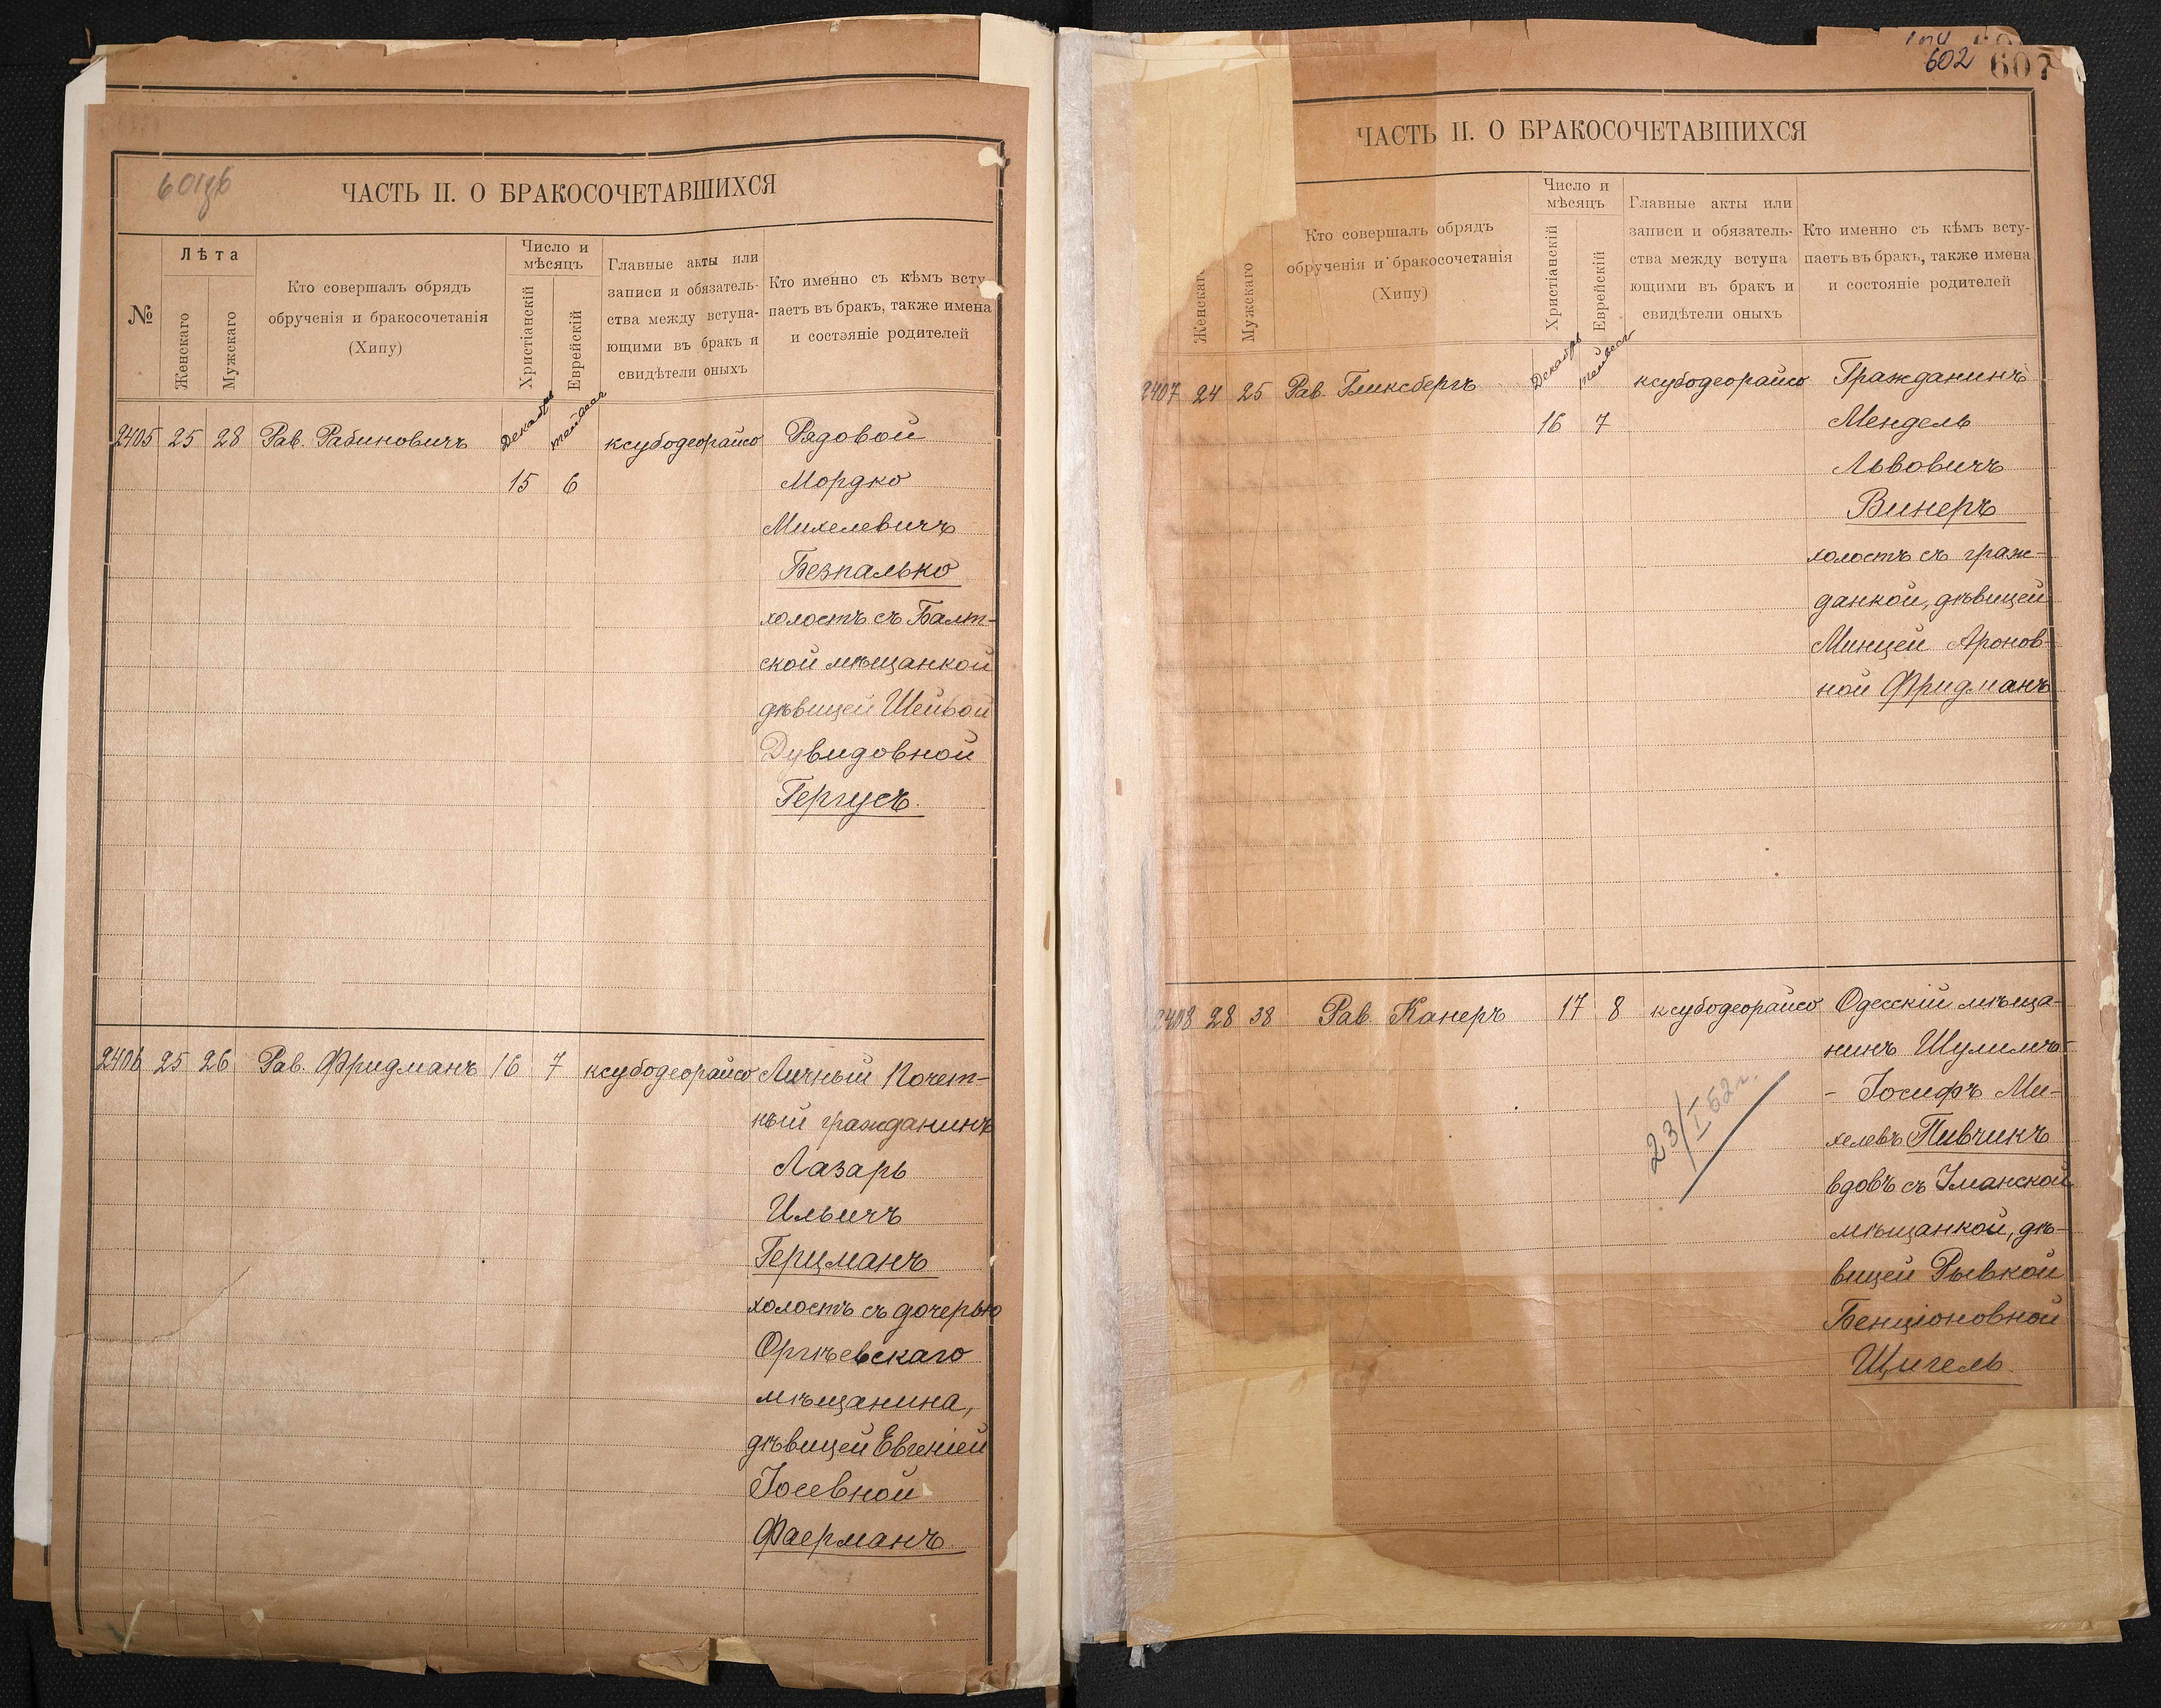 601зв
ЧАСТЬ II. О БРАКОСОЧЕТАВШИХСЯ
№
Лѣта
Женскаго
Мужскаго
Кто совершалъ обрядъ
обрученія и бракосочетанія
(Хипу)
Число и
мѣсяцъ
Христіанскій
Еврейскій
Главные акты или
записи и обязатель-
ства между вступа-
ющими въ бракъ и
свидѣтели оныхъ
Кто именно съ кѣмъ всту
паетъ въ бракъ, также имена
и состояніе родителей
Декабрь
2405 25 28 Рав. Рабиновичъ ксубодеорайсо Рядовой
15 6 Мордко
Михелевичъ
Безпалько
холостъ съ Балт-
ской мѣщанкой
дѣвицей Шейвой
Дувидовной
Гергусъ.
2406 25 26 Рав. Фридманъ 16 7 ксубодеорайсо Личный Почет-
ный гражданинъ
Лазарь
Ильичъ
Герцманъ
холостъ съ дочерью
Оргѣевскаго
мѣщанина,
дѣвицей Евгеніей
Іосевной
Фаерманъ.
602 607
ЧАСТЬ II. О БРАКОСОЧЕТАВШИХСЯ
Женскаг
Мужскаго
Кто совершалъ обрядъ
обрученія и бракосочетанія
(Хипу)
Число и
мѣсяцъ
Христіанскій
Еврейскій
Главные акты или
записи и обязатель-
ства между вступа
ющими въ бракъ и
свидѣтели оныхъ
Кто именно съ кѣмъ всту-
паетъ въ бракъ, также имена
и состояніе родителей
Декабрь
2407 24 25 Рав. Гликсбергъ ксубодеорайсо Гражданинъ
16 7 Мендель
Львовичъ
Винеръ
холостъ съ граж-
данкой, дѣвицей
Минцей Аронов-
ной Фридманъ
2408 28 38 Рав. Канеръ 17 8 ксубодеорайсо Одесскій мѣща-
нинъ Шулимъ-
- Іосифъ Ми-
хелевъ Пивчикъ
вдовъ съ Уманской
мѣщанкой, дѣ-
вицей Рывкой
Бенціоновной
Щигель.
23/I 52 г.